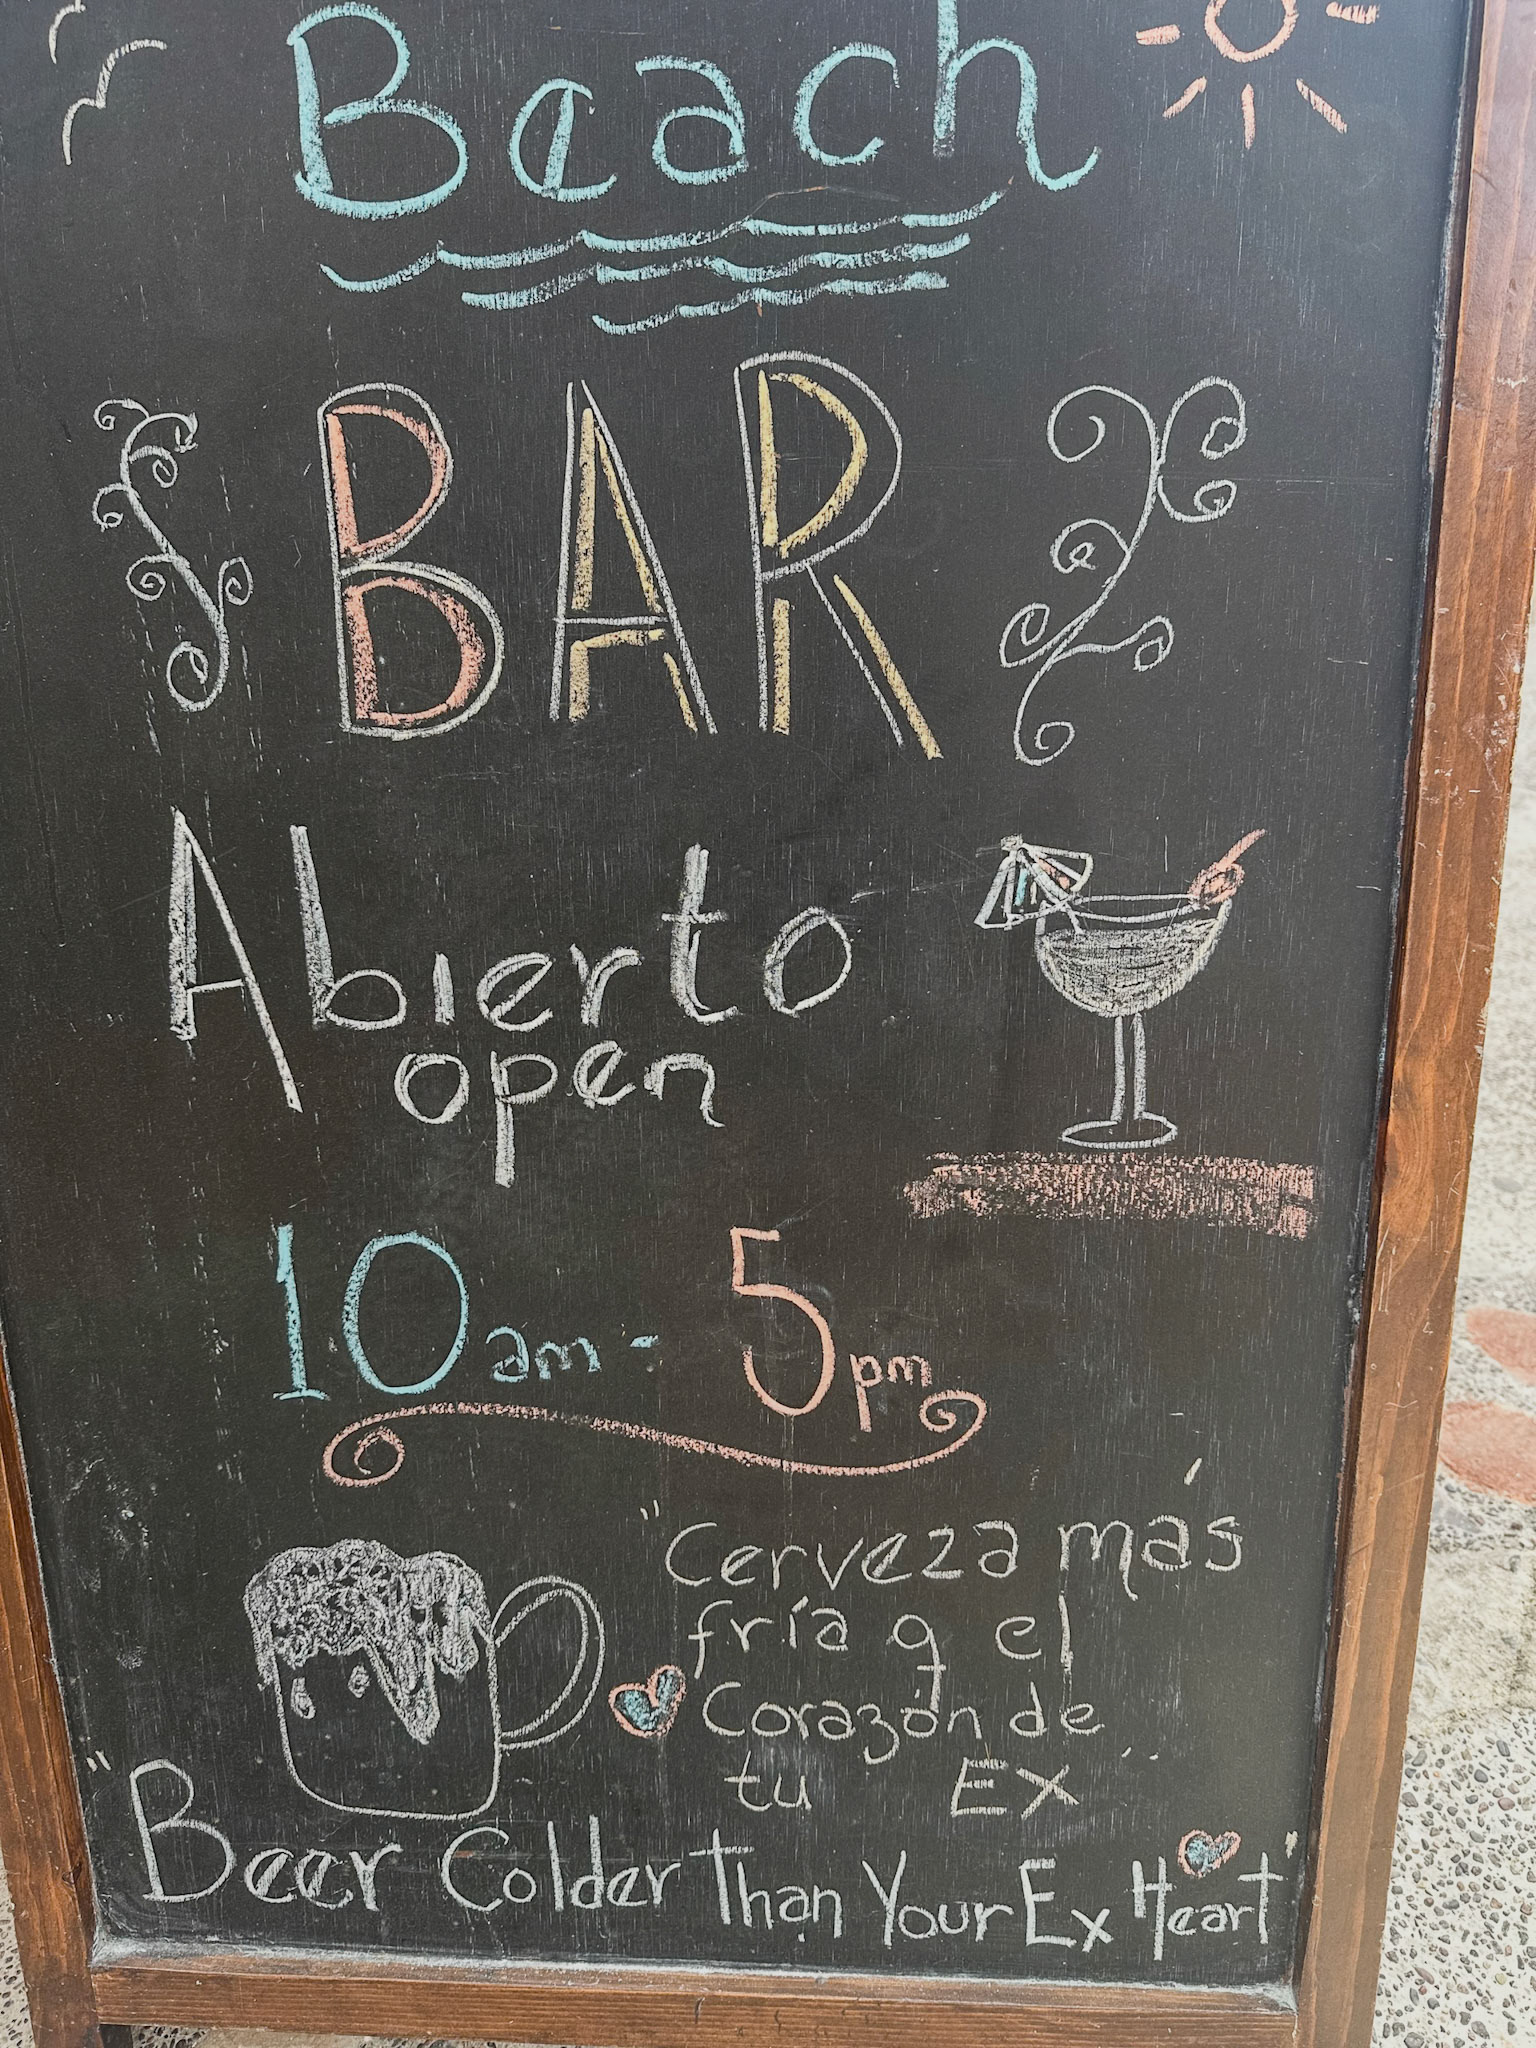 Beach
BAR
Abierto
open
10am - 5pm
"Cerveza más
fría q el
Corazón de
tu EX"
"Beer Colder Than Your Ex Heart"